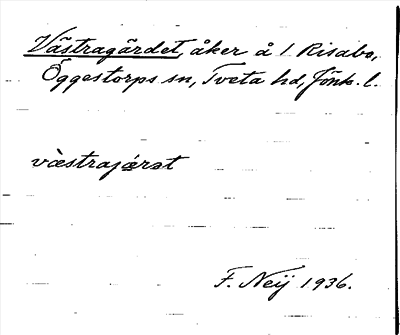 Västragärdet, åker å 1 Risabo,
Öggestorps sn, Tveta hd, Jönk. l.
västrajæ̀rət
F. Neij 1936.